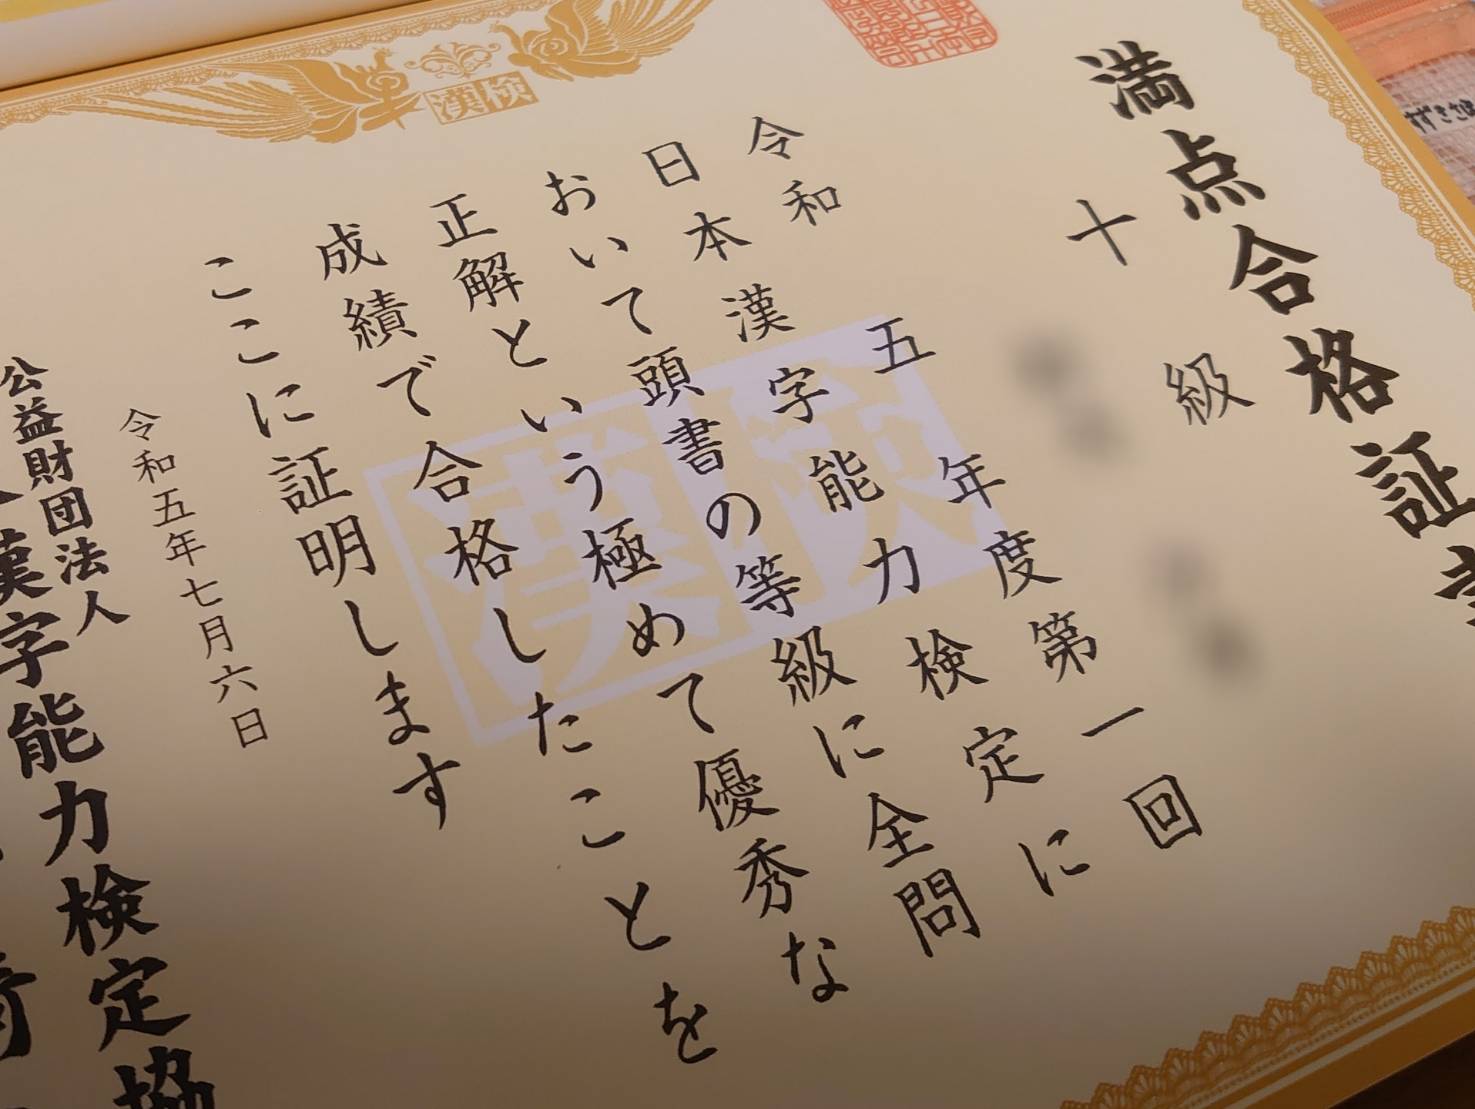 満点合格証書
十級
令和五年度第一回
日本漢字能力検定に
おいて頭書の等級に全問
正解という極めて優秀な
成績で合格したことを
ここに証明します
令和五年七月六日
公益財団法人
漢字能力検定協
漢検
漢検